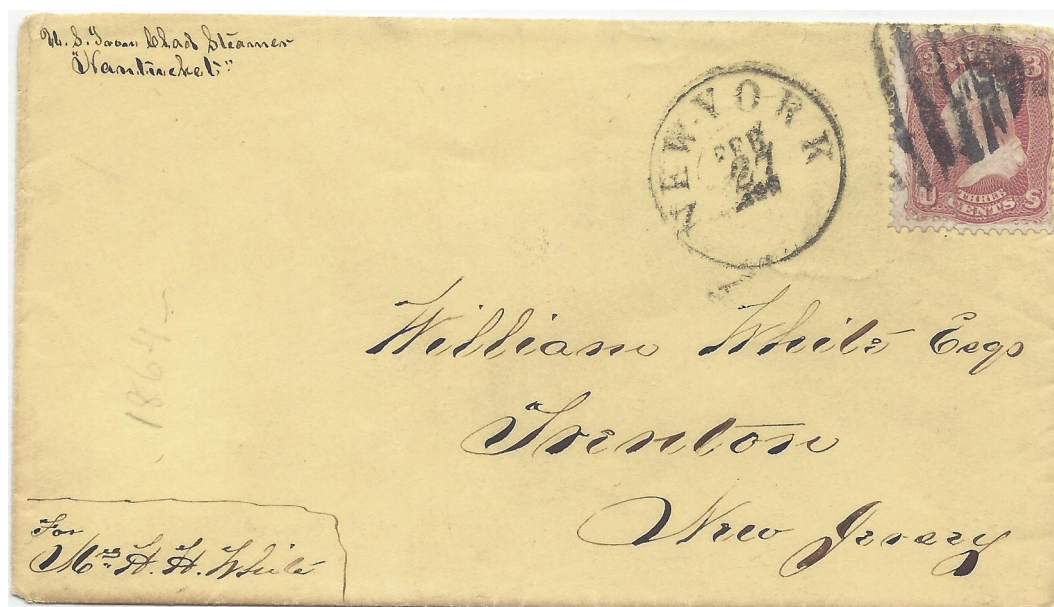 U. S. Iron Clad Steamer
"Nantucket"
NEW-YORK
FEB
27
3 3
THREE
U CENTS S
William White Esqr
Trenton
New Jersey
1864
For
Mrs H. H. White